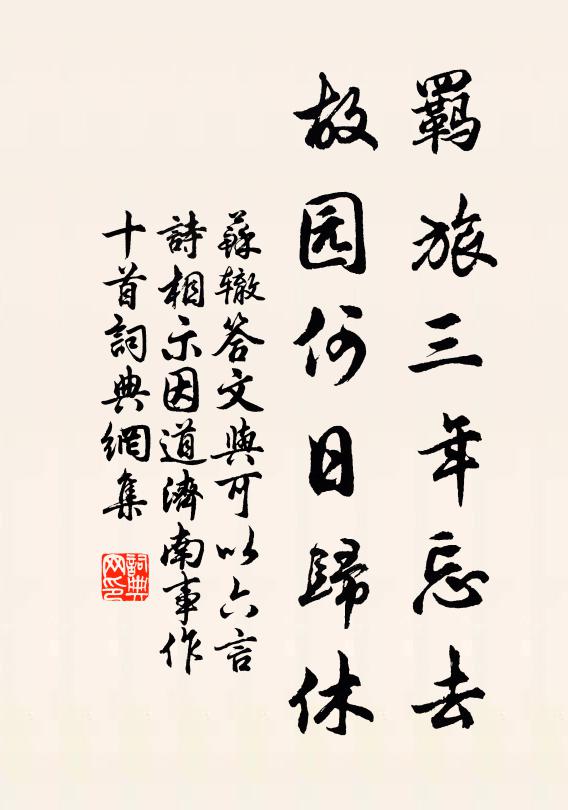 羈旅三年忘去
故园何日歸休
蘇辙答文與可以六言
詩相示因道濟南事作
十首詞典網集
詞典网印